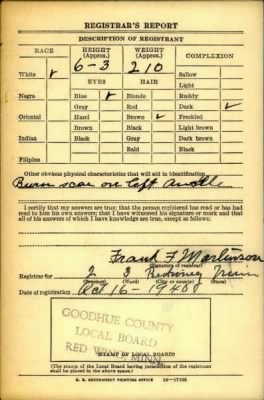 REGISTRAR'S REPORT
DESCRIPTION OF REGISTRANT
RACE HEIGHT (Approx.) WEIGHT (Approx.) COMPLEXION
6-3 210
White ✓ Sallow
EYES HAIR Light
Negro Blue ✓ Blonde Ruddy
Gray Red Dark ✓
Oriental Hazel Brown ✓ Freckled
Brown Black Light brown
Indian Black Gray Dark brown
Bald Black
Filipino
Other obvious physical characteristics that will aid in identification
Burn scar on left
I certify that my answers are true; that the person registered has read or has had
read to him his own answers; that I have witnessed his signature or mark and that
all of his answers of which I have knowledge are true, except as follows:
Frank F Martinson
(Signature of registrar)
Registrar for 2 3 Redwing Minn
(Precinct) (Ward) (City or county) (State)
Date of registration Oct 16-1940
GOODHUE COUNTY
LOCAL BOARD
RED WING, MINN.
STAMP OF LOCAL BOARD
(The stamp of the Local Board having jurisdiction of the registrant
shall be placed in the above space.)
U. S. GOVERNMENT PRINTING OFFICE 16-17105